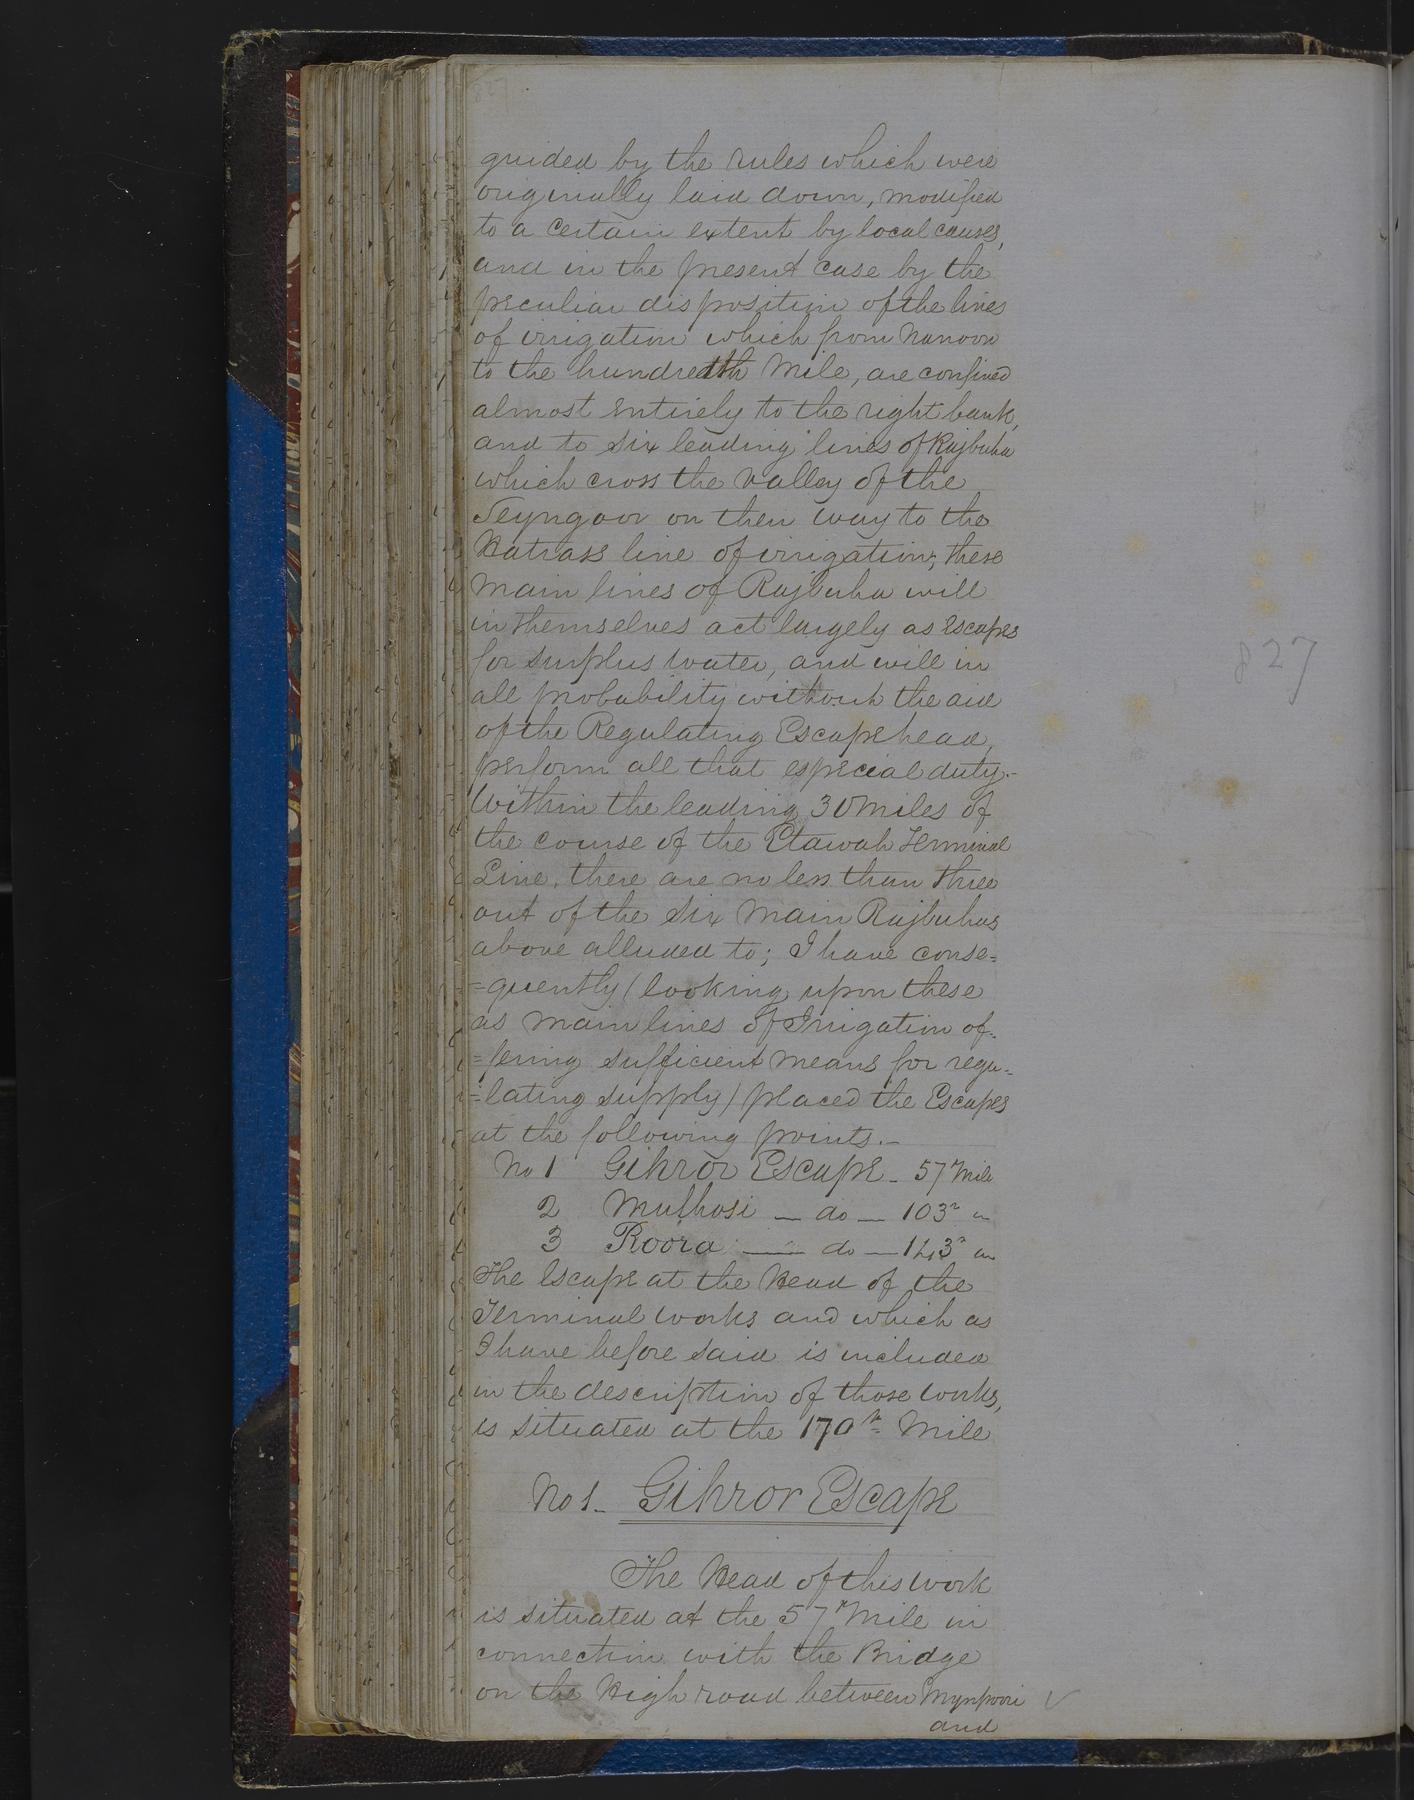 guided by the rules which were
originally laid down, modified
to a certain extent by local causes,
and in the present case by the
peculiar disposition of the lines
of irrigation which from Nanoon
to the hundredth Mile, are confined
almost entirely to the right bank,
and to six leading lines of Rajbuha
which cross the valley of the
Seyngoor on their way to the
Natrass line of irrigation; these
main lines of Rajbuha will
in themselves act largely as Escapes
for surplus water, and will in
all probability without the aid
of the Regulating Escape head,
perform all that especial duty.-
Within the leading 30 miles of
the course of the Etawah Terminal
Line, there are no less than three
out of the six main Rajbuhas
above alluded to; I have conse=
=quently (looking upon these
as main lines of Irrigation of=
=fering sufficient means for regu=
=lating supply) placed the Escapes
at the following points.-
No 1 Gihror Escape - 57th Mile
2 Mulhosi — do — 103rd "
3 Roora — do — 143rd "
The Escape at the Head of the
Terminal works and which as
I have before said is included
in the description of those works,
is situated at the 170th Mile
No 1- Gihror Escape
The Head of this work
is situated at the 57th Mile in
connection with the Bridge
on the High road between Mynpoori
and
827